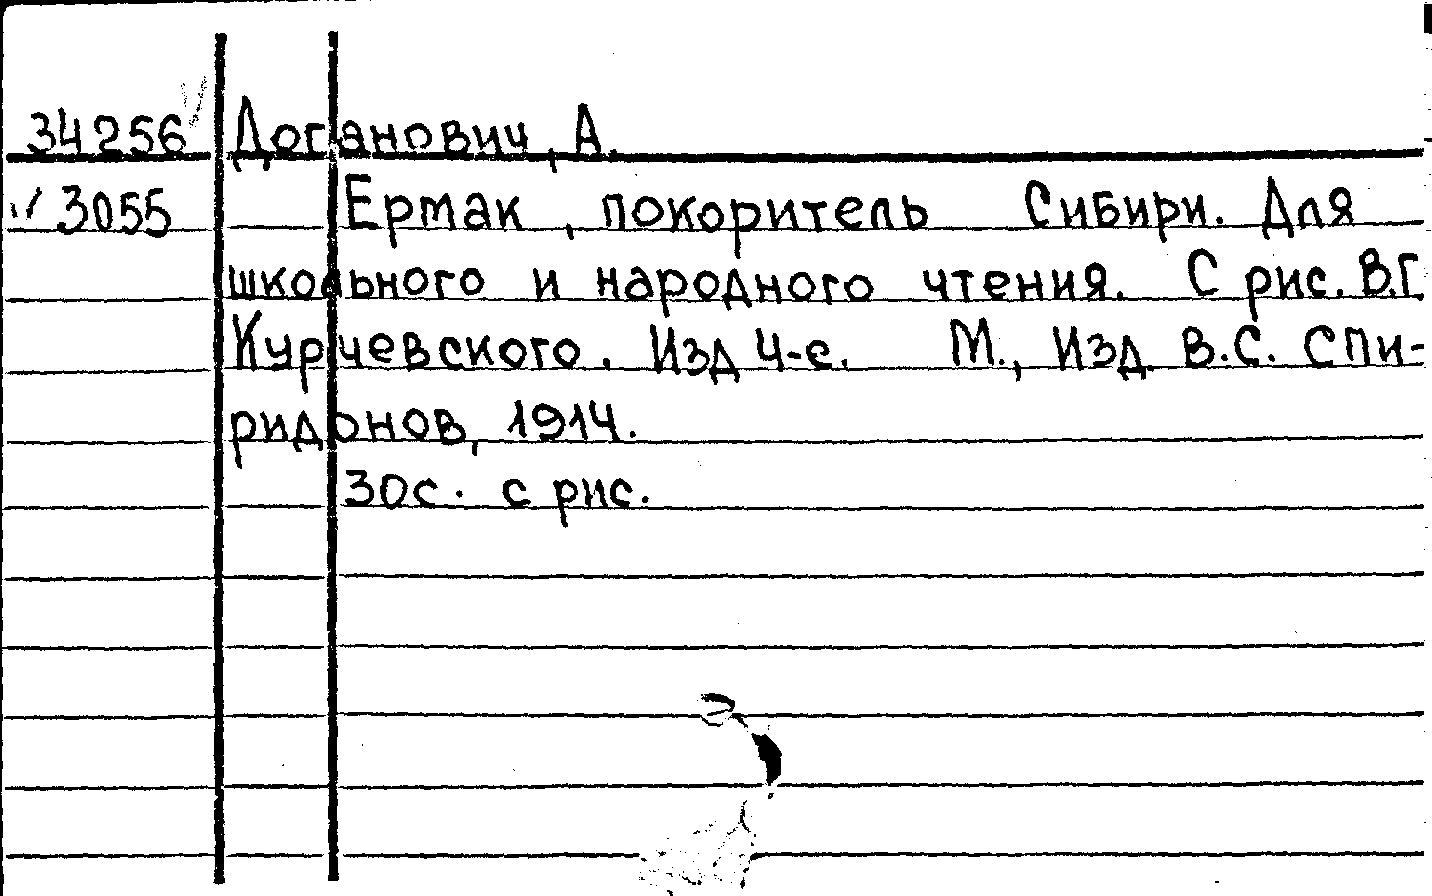 34256 Доганович, А.
3055 Ермак, покоритель Сибири. Для
школьного и народного чтения. С рис. В.Г.
Курчевского. Изд 4-е. М., Изд. В.С. Спи-
ридонов, 1914.
30с. с рис.